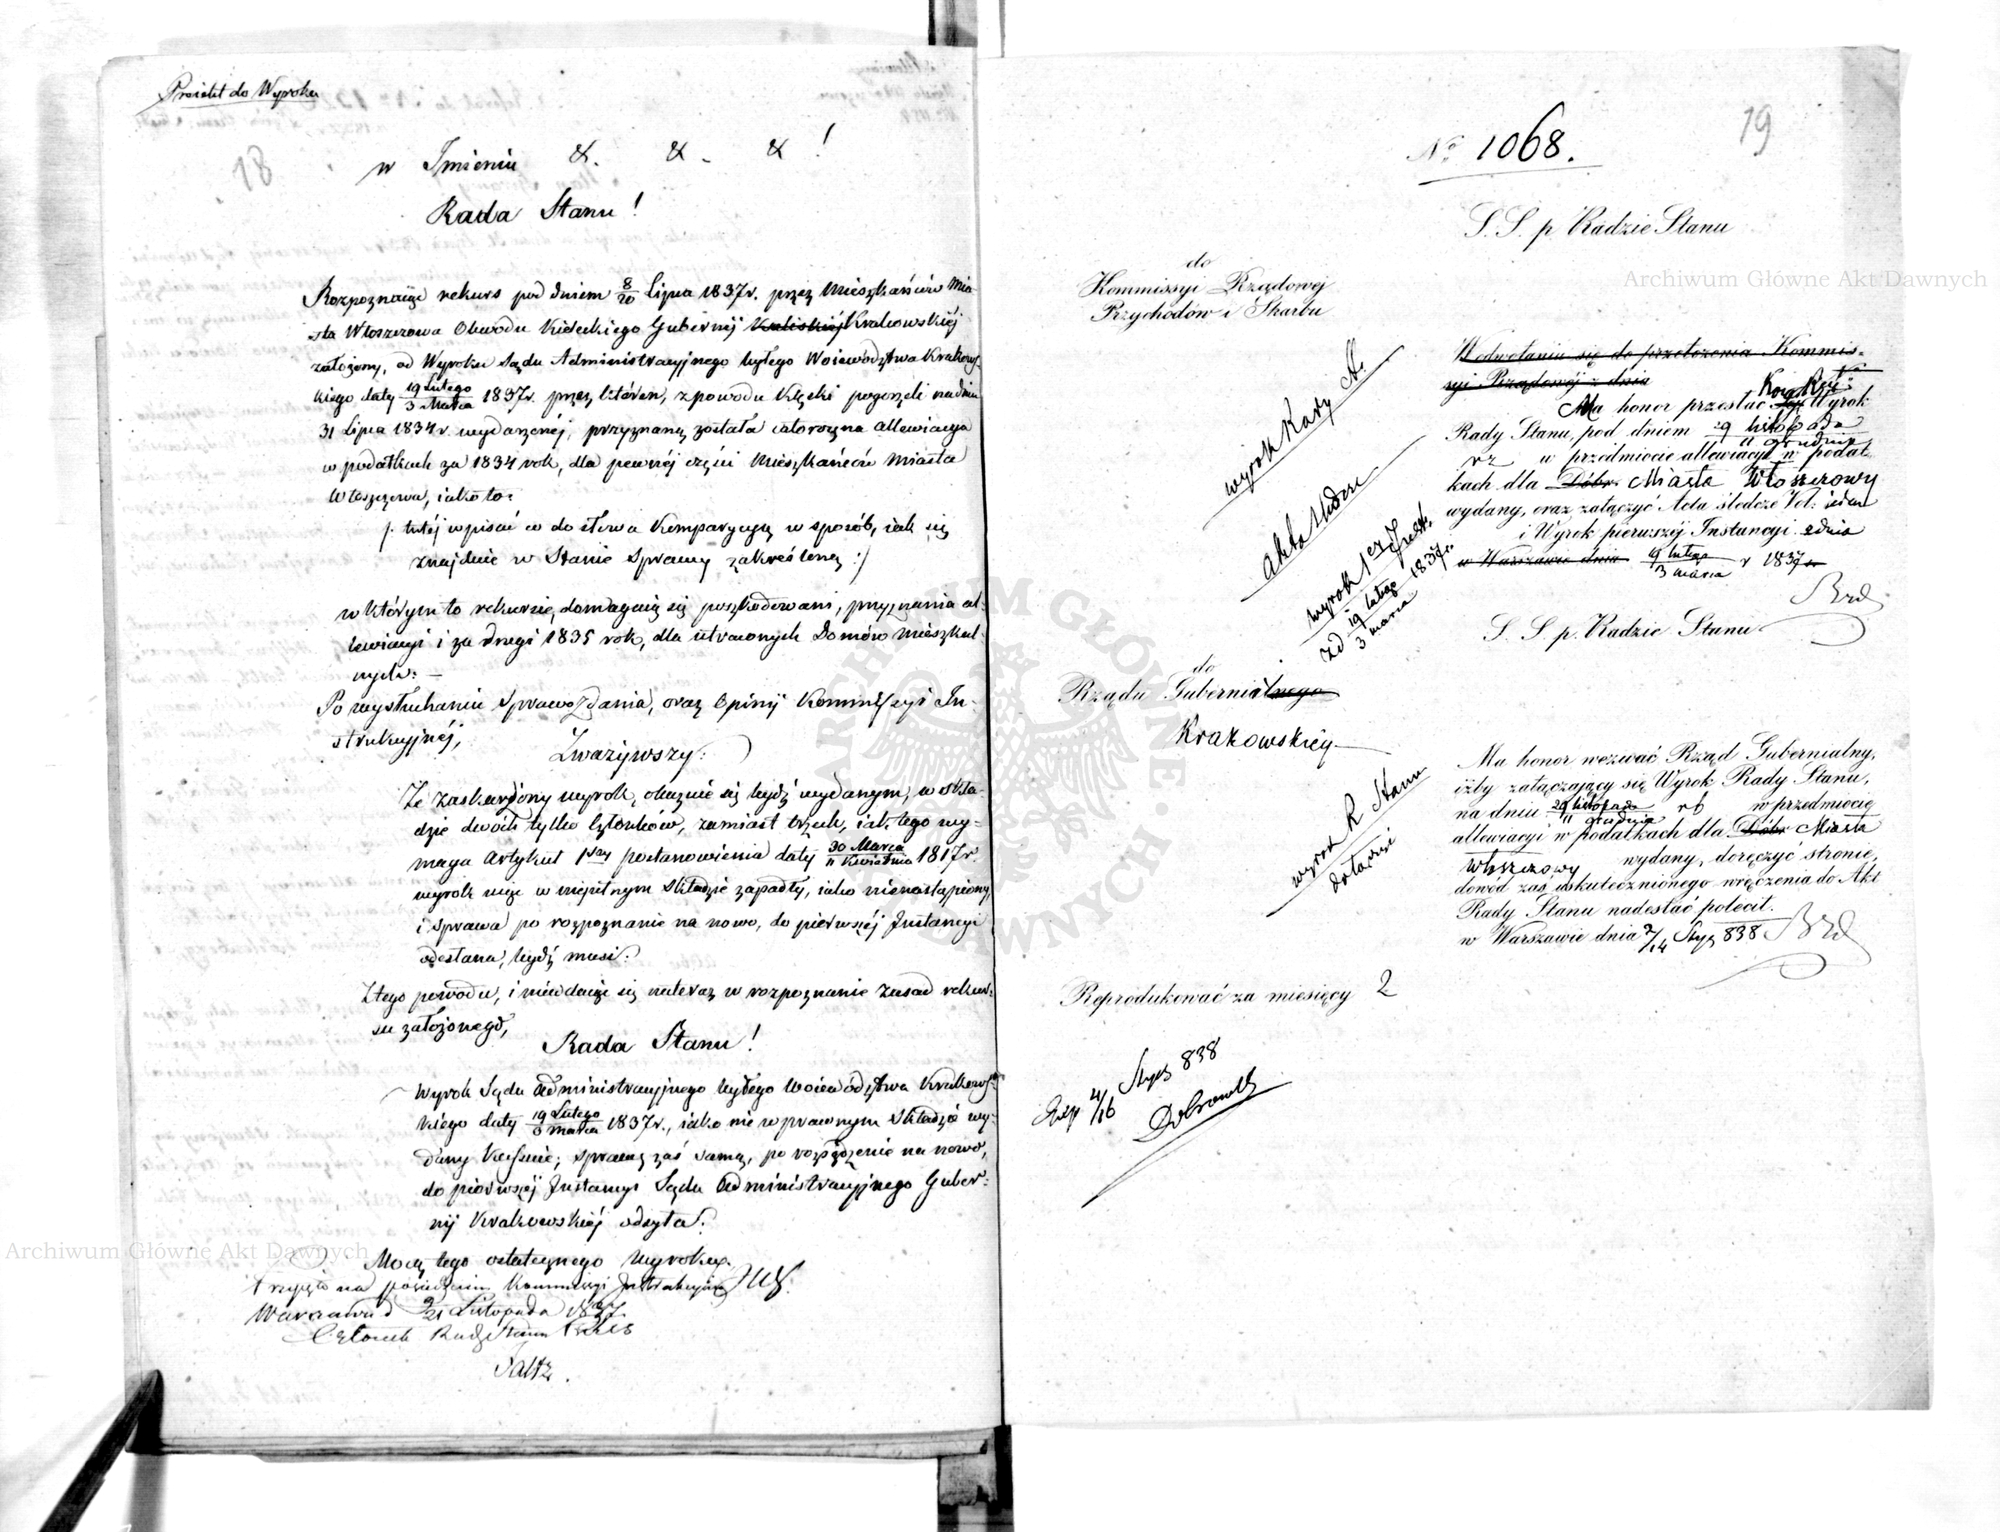 Proiekt do Wyroku
18
w Imieniu &. &. &!
Rada Stanu!
Rozpoznając rekurs pod dniem 8/20 Lipca 1837 r. przez Mieszkańców Mia-
sta Włoszczowa Obwodu Kieleckiego Gubernij Kaliskiej Krakowskiéj
założony, od Wyroku Sądu Administracyjnego byłego Województwa Krakows-
kiego daty 19 Lutego/3 Marca 1837 r. przez któren, z powodu klęski pogorzeli na dniu
31 Lipca 1834 r. wydarzonej, przyznaną została całoroczna allewiacya
w podatkach za 1834 rok, dla pewnéj części Mieszkańców Miasta
Włoszczowa, iako to:
/: tutéj wpisać co do słowa Komparycyą w sposób, iak się
znajduie w Stanie Sprawy zakreśloną :/
w którym to rekursie, domagaią się poszkodowani, przyznania al-
lewiacyi i za drugi 1835 rok, dla utraconych Domów mieszkal-
nych: —
Po wysłuchaniu Sprawozdania, oraz Opinij Kommissyi In-
strukcyjnéj,
Zważywszy:
Że zaskarżony wyrok, okazuie się bydź wydanym, w skła-
dzie dwóch tylko Członków, zamiast trzech, iak tego wy-
maga Artykuł 1szy postanowienia daty 30 Marca/11 Kwietnia 1817 r.
wyrok więc w niepełnym składzie zapadły, iako nienastąpiony,
i sprawa po rozpoznanie na nowo, do pierwszéj Instancyi
odesłana, bydź musi:
Z tego powodu, i niewdaiąc się na teraz w rozpoznanie zasad rekur-
su założonego,
Rada Stanu!
Wyrok Sądu Administracyjnego byłego Województwa Krakows-
kiego daty 19 Lutego/3 Marca 1837 r., iako nie w prawnym składzie wy-
dany kassuie; sprawę zaś samą, po rozsądzenie na nowo,
do pierwszéj Instancyi Sądu Administracyjnego Guber-
nij Krakowskiéj odsyła.
Mocą tego ostatecznego wyroku.
Przyjęto na posiedzeniu Kommissyi Instrukcyjnéj
Warszawa d 9/21 Listopada 1837.
Członek Rady Stanu
19
No 1068.
S. S. p. Radzie Stanu
do
Kommissyi Rządowéj
Przychodów i Skarbu
W odwołaniu się do przełożenia Kommis-
syi Rządowéj z dnia
Ma honor przesłać Wyrok
Rady Stanu, pod dniem 29 listopada/11 grudnia
rz w przedmiocie allewiacyi w podat-
kach dla Dóbr Miasta Włoszczowy
wydany, oraz załączyć Acta śledcze Vol: ieden
i Wyrok pierwszéj Instancyi z dnia
w Warszawie dnia 19 lutego/3 marca r 1837
wyrok Rady St.
akta śledcze
wyrok 1ej Inst.
zd 19 lutego/3 marca 1837 r.
S. S. p. Radzie Stanu
do
Rządu Gubernialnego
Krakowskiey
Ma honor wezwać Rząd Gubernialny,
iżby załączaiący się Wyrok Rady Stanu,
na dniu 29 listopada/11 grudnia rb w przedmiocie
allewiacyi w podatkach dla Dóbr Miasta
Włoszczowy wydany, doręczyć stronie,
dowód zaś uskutecznionego wręczenia do Akt
Rady Stanu nadesłać polecił.
w Warszawie dnia 2/14 Stycz 838
wyrok R Stanu
dołącza
Reprodukować za miesięcy 2
Exp 4/16 Stycz 838
Archiwum Główne Akt Dawnych
Archiwum Główne Akt Dawnych
ARCHIWUM GŁÓWNE AKT DAWNYCH